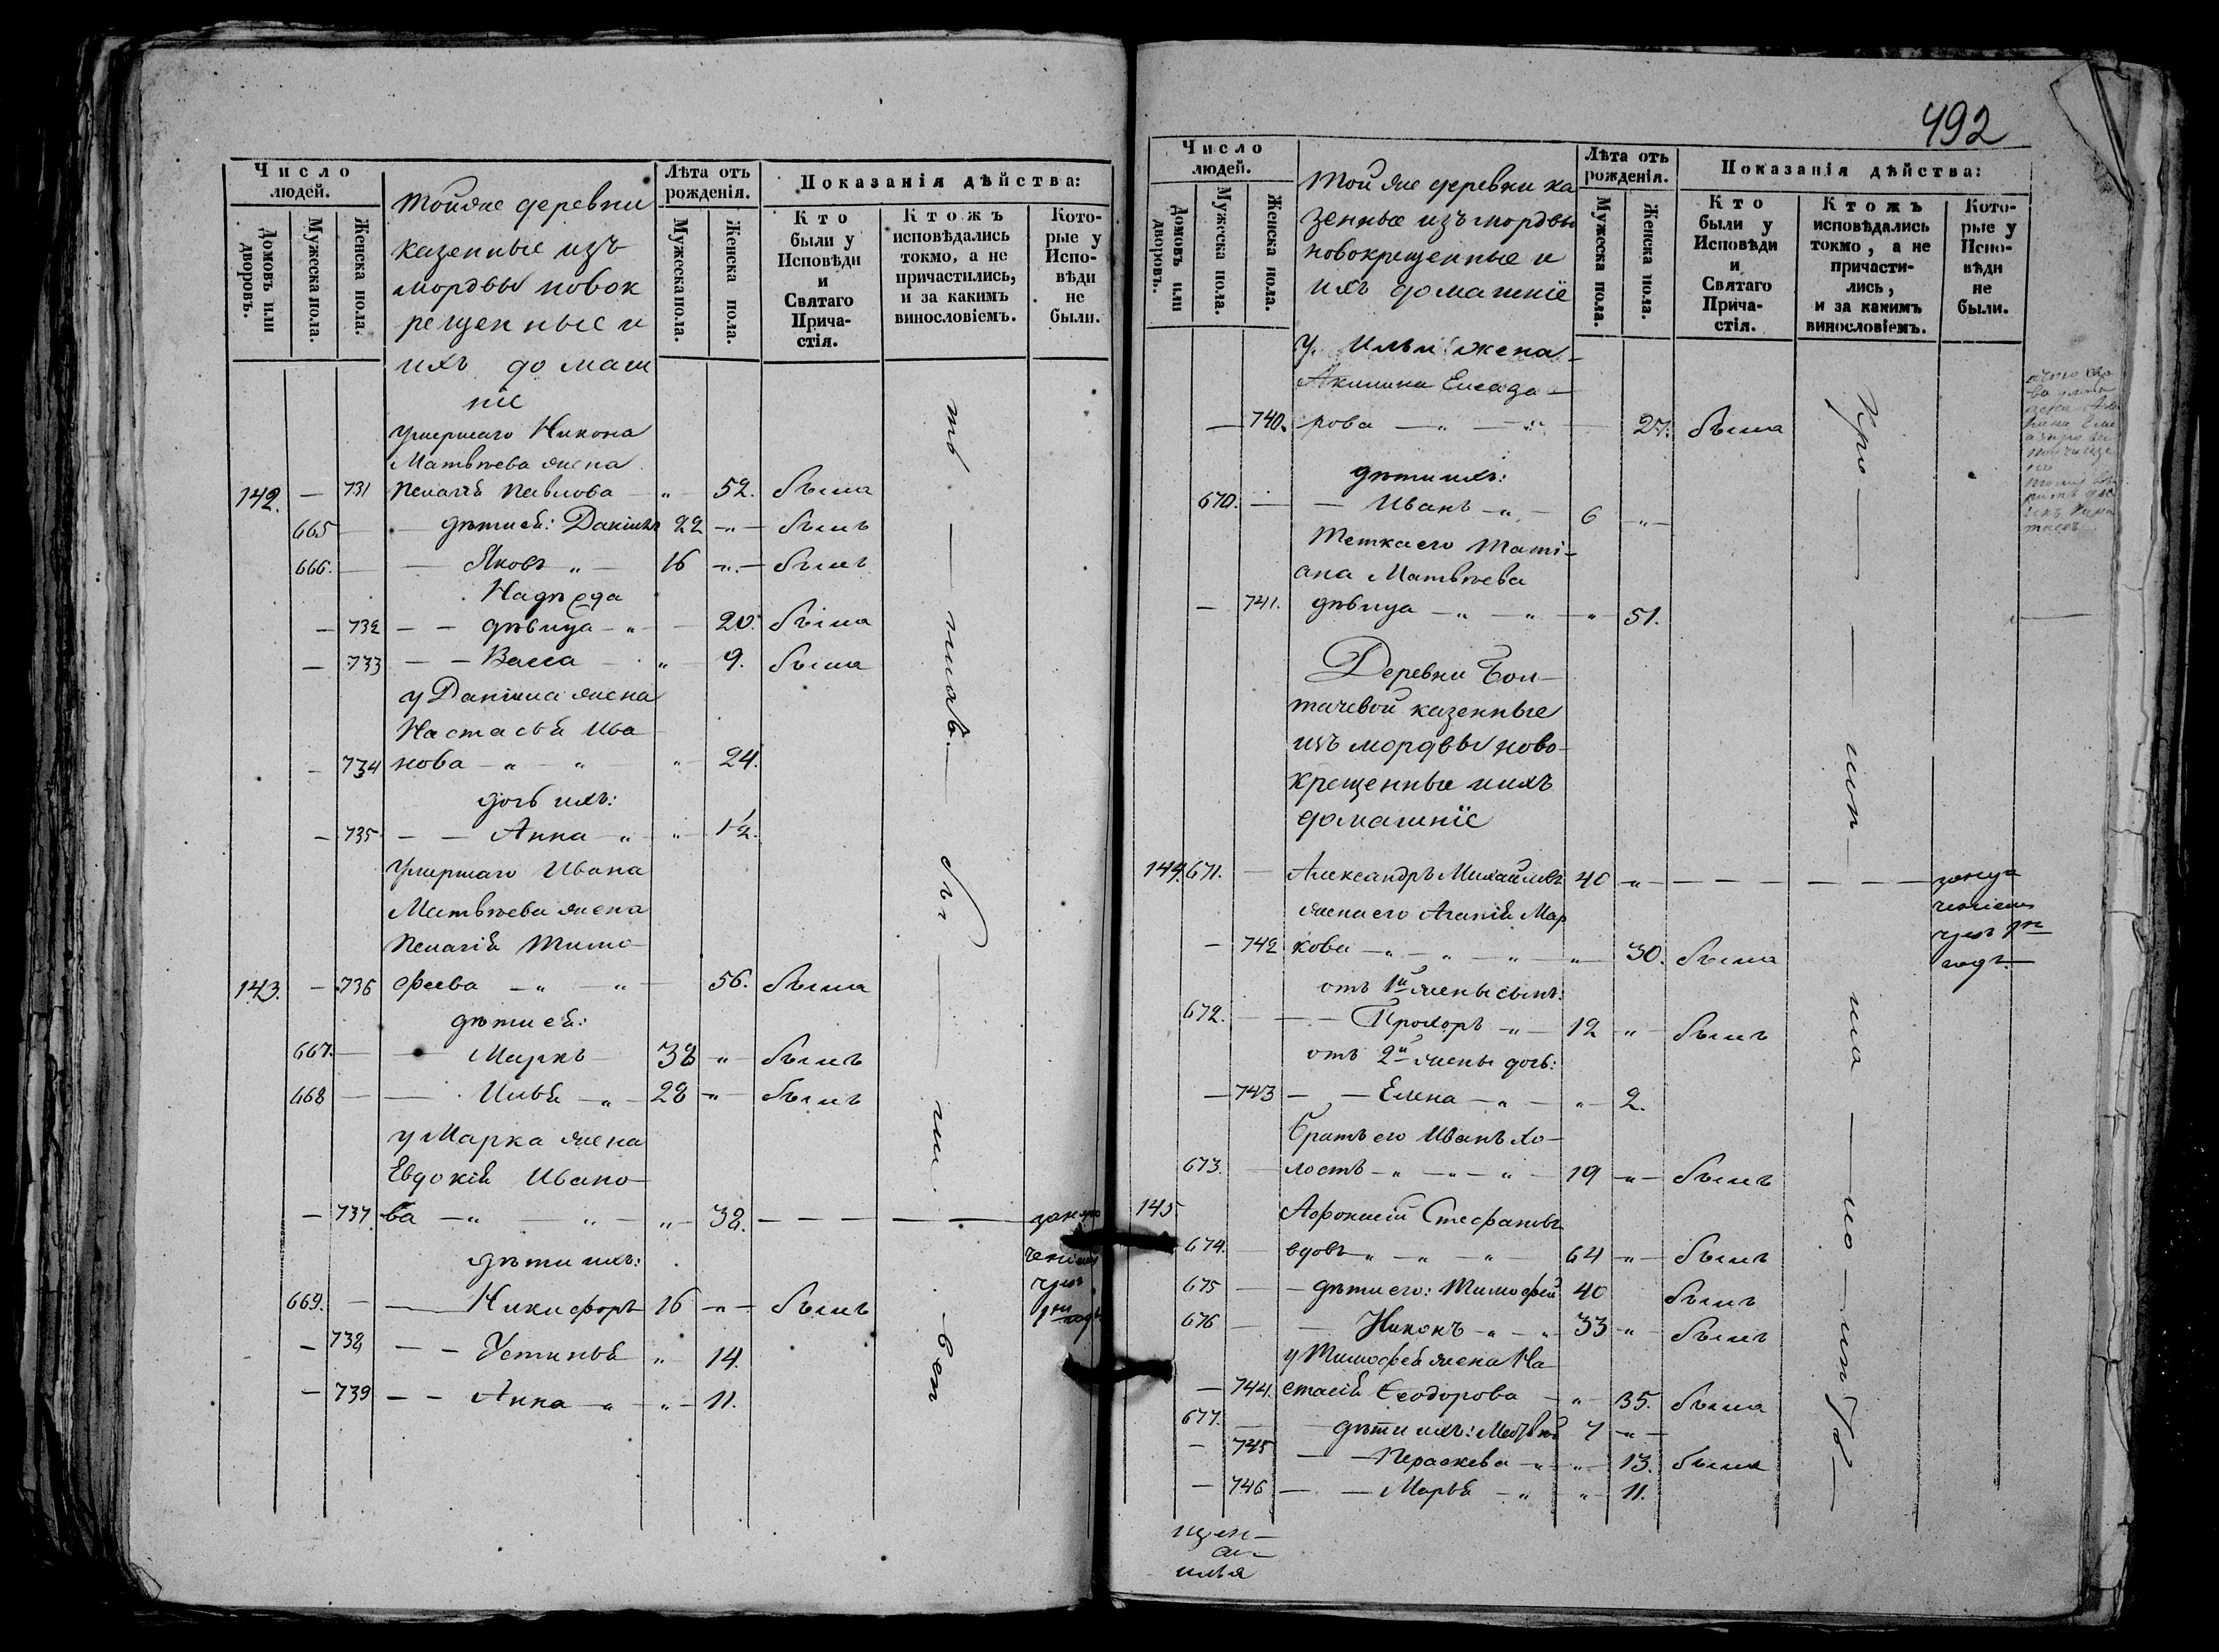 Число людей.
Лѣта отъ рожденія.
Показанія дѣйства:
Домовъ или дворовъ.
Мужеска пола.
Женска пола.
Мужеска пола.
Женска пола.
Кто были у Исповѣди и Святаго Причастія.
Ктожъ исповѣдались токмо, а не причастились, и за какимъ винословіемъ.
Которые у Исповѣди не были.
Тойже деревни
казенные изъ
мордвы новок
рещенные и
ихъ домаш
ніе
Умершаго Никона
Матвѣева жена
142. — 731 Пелагія Павлова — „ — 52. была
665 — дѣти ея: Даніилъ 22 — „ — былъ
666. — — Яковъ „ — 16 „ — былъ
Надѣжда
— 732 — — дѣвица — „ — 20. была
— 733 — — Васса — „ 9. была
у Даніила жена
Настасья Ива
— 734 нова — „ — „ — „ — 24.
дочь ихъ:
— 735 — — Анна — „ — „ 1½.
Умершаго Ивана
Матвѣева жена
Пелагія Тимо-
143. — 736 фѣева — „ — „ — 56. была
дѣти ея:
667. — — Маркъ — 38 — „ — былъ
668 — — Илья — „ — 28 — „ — былъ
у Марка жена
Евдокія Ивано
— 737. ва — „ — „ — „ — 38. — — — — —
дѣти ихъ:
669. — — Никифоръ 16 — „ — былъ
— 738 — — Устинья „ — 14.
— 739 — — Анна — „ — „ — 11.
492
Число людей.
Лѣта отъ рожденія.
Показанія дѣйства:
Домовъ или дворовъ.
Мужеска пола.
Женска пола.
Мужеска пола.
Женска пола.
Кто были у Исповѣди и Святаго Причастія.
Ктожъ исповѣдались токмо, а не причастились, и за какимъ винословіемъ.
Которые у Исповѣди не были.
Той же деревни ка
зенные изъ мордвы
новокрещенные и
ихъ домашніе
у Ильи жена —
Акилина Елеаза —
— 740. рова — „ — „ — 27. была
дѣти ихъ:
670. — — Иванъ — „ — 6 — „ —
Тетка его Тати-
ана Матвѣева
— 741. дѣвица — „ — „ — „ — 51.
Деревни Бол-
тачевой казенные
изъ мордвы ново-
крещенные и ихъ
домашніе
144. 671. — Александръ Михайловъ 40 — „ — — — — — —
жена его Агапія Мар
— 742 кова — „ — „ — „ — „ — 30. была
отъ 1й жены сынъ:
672. — — Прохоръ — „ — 12 „ — былъ
отъ 2й жены дочь:
— 743 — — Елена — „ — „ — 2.
братъ его Иванъ хо-
673. — лостъ — „ — „ — „ — 19 — „ — былъ
145 Афонасій Стефановъ
674. — вдовъ „ — „ — „ 64 „ — былъ
675 — — дѣти его: Тимофѣй 40 былъ
676 — — Никонъ — „ — „ 33 — „ — былъ
у Тимофѣя жена На-
— 744. стасія Ѳеодорова — „ — 35. была
677. — — дѣти ихъ: Матвѣй 7 — „ —
— 745 — — Параскева — „ — „ — 13. была
— 746 — — Марья — „ — „ — 11.